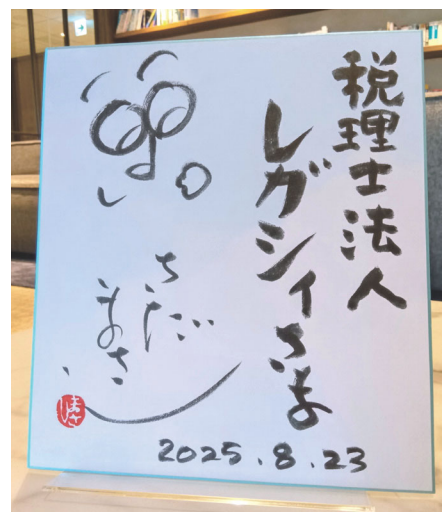 税理士法人
レガシィさま
さだ
まさし
2025.8.23